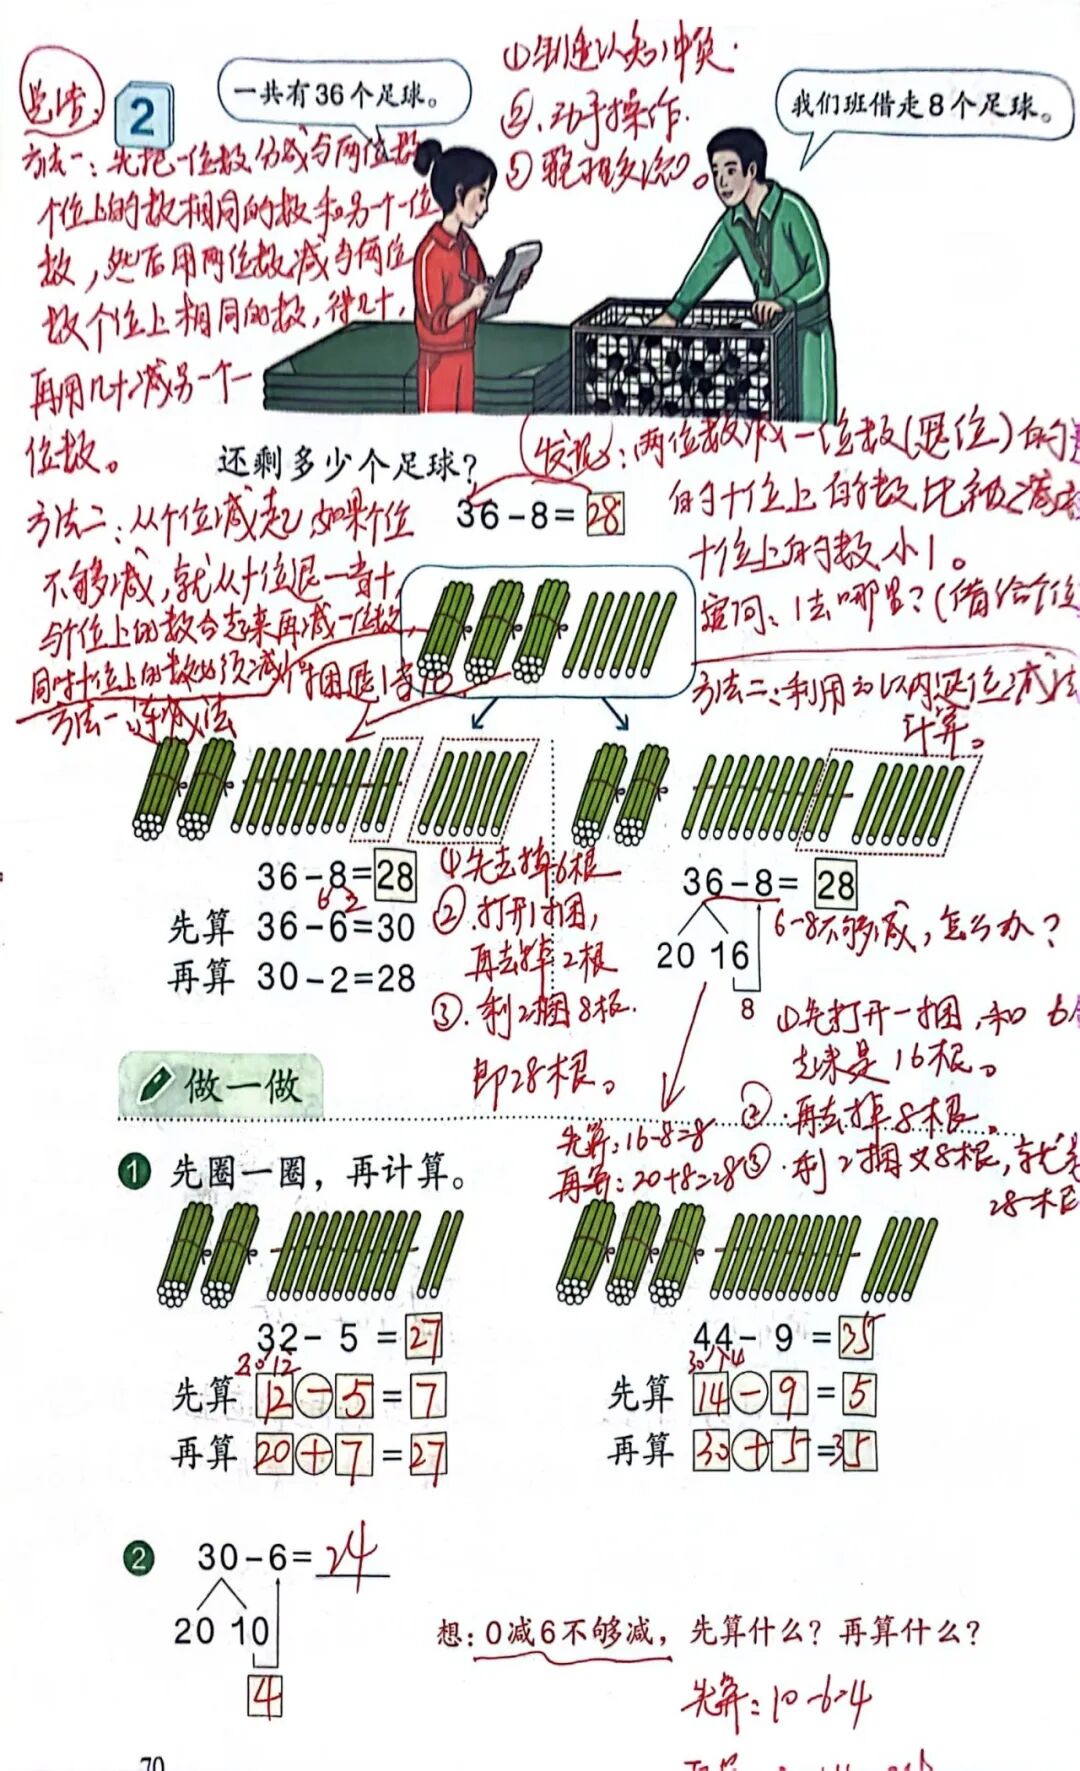 总结:
2
一共有36个足球。
我们班借走8个足球。
①创造认知冲突.
②.动手操作.
方法一:先把一位数分成与两位数
个位上的数相同的数和另一个一位
数,然后用两位数减与两位
数个位上相同的数,得几十,
再用几十减另一个一
位数。
还剩多少个足球?
36-8=28
发现:两位数减一位数(退位)的
的十位上的数比被减数
十位上的数小1。
1去哪里?(借给个位
方法二:从个位减起,如果个位
不够减,就从十位退一当十,
与个位上的数合起来再减一位数,
同时十位上的数必须减1
捆退1当10
方法一:连减法
方法二:利用20以内退位减法
计算。
36-8=28
6 2
先算 36-6=30
再算 30-2=28
①先去掉6根
②.打开1捆,
再去掉2根
③.剩2捆8根.
即28根。
36-8=28
20 16
8
6-8不够减,怎么办?
①先打开一捆,和6
起来是16根。
②.再去掉8根。
③.剩2捆又8根,就是
28根
先算:16-8=8
再算:20+8=28
做一做
1 先圈一圈,再计算。
32-5=27
20 12
先算 12-5=7
再算 20+7=27
44-9=35
30 14
先算 14-9=5
再算 30+5=35
2 30-6=24
20 10
4
想:0减6不够减,先算什么?再算什么?
先算:10-6=4
70